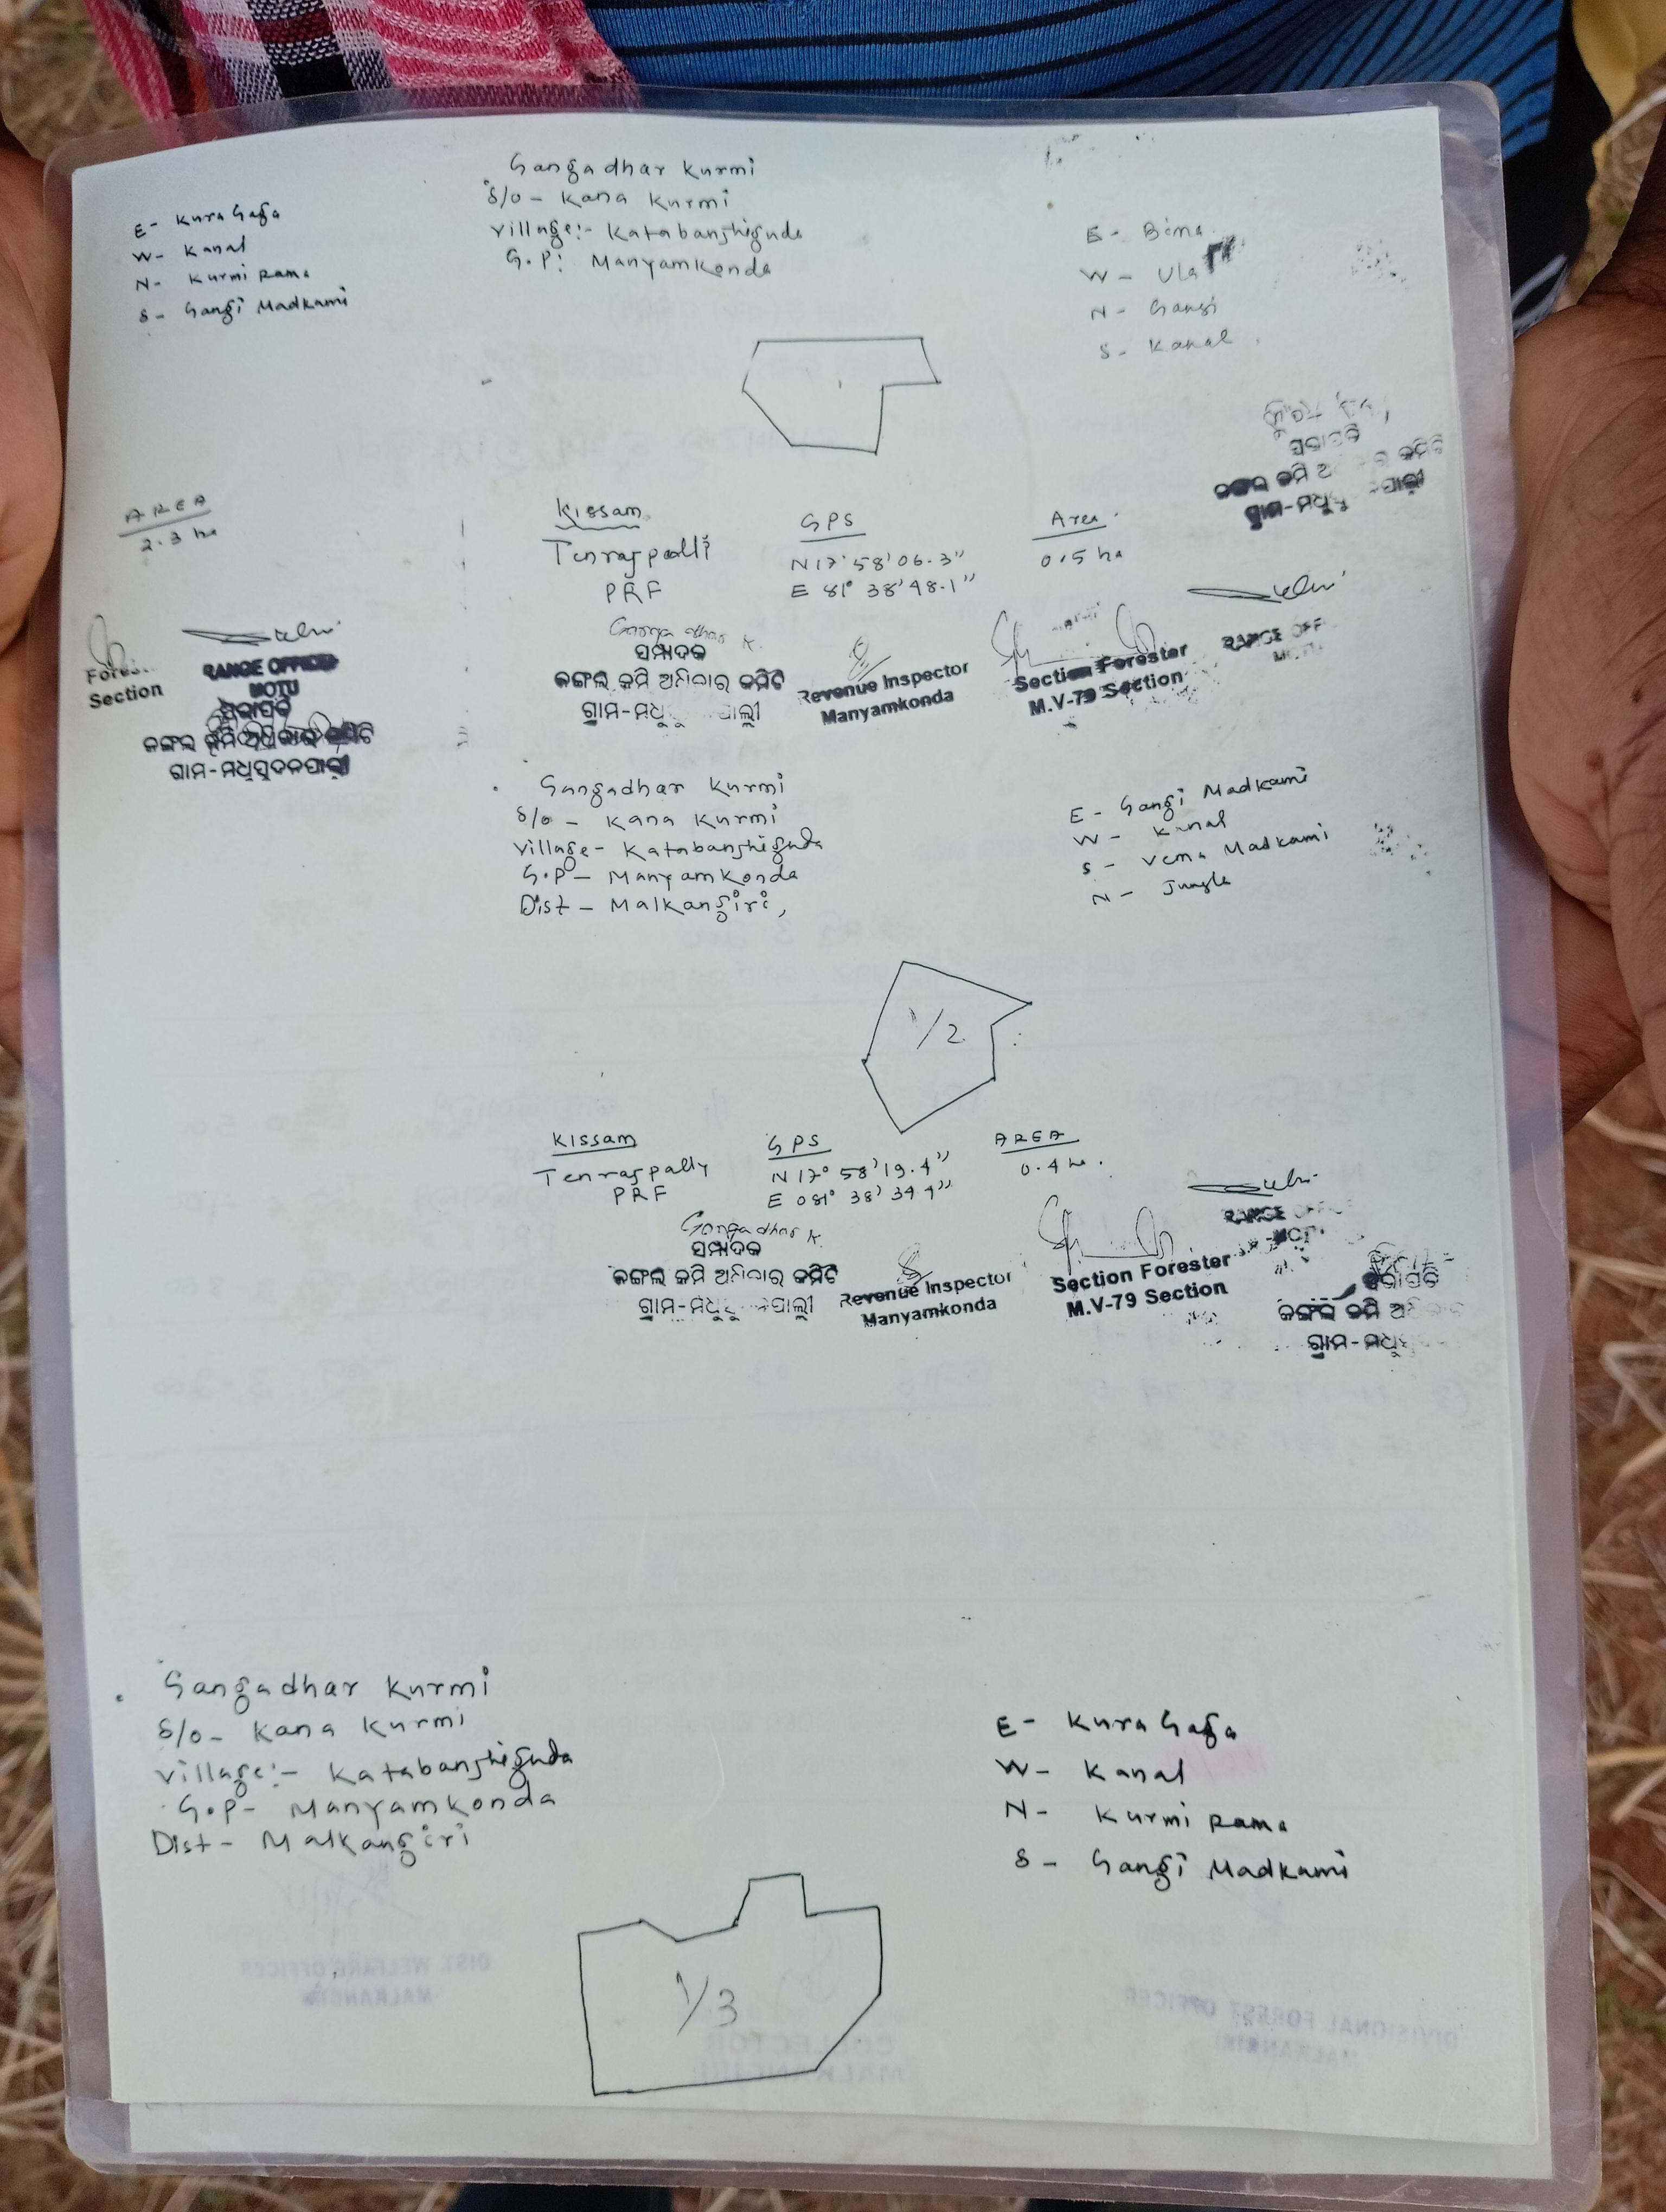 Gangadhar Kurmi
S/o - Kana Kurmi
Village:- Katabanshiguda
G.P: Manyamkonda
E- Kura Gafa
W- Kanal
N- Kurmi Rama
S- Gangi Madkami
E- Bima
W- Ula
N- Gangi
S- Kanal
AREA
2.3 ha
Kissam
GPS
Area
Tenraspalli
PRF
N 17° 58' 06.3"
E 81° 38' 48.1"
0.5 ha
ସଭାପତି
RANGE OFFICER
MOTU
ସଭାପତି
ଜଙ୍ଗଲ ଜମି ଅଧିକାର କମିଟି
ଗ୍ରାମ-ମଧୁସୁଦନପାଲ୍ଲୀ
Section
Gangadhar K.
ସମ୍ପାଦକ
ଜଙ୍ଗଲ ଜମି ଅଧିକାର କମିଟି
Revenue Inspector
Manyamkonda
Section Forester
M.V-79 Section
Gangadhar Kurmi
S/o - Kana Kurmi
Village - Katabanshiguda
G.P - Manyamkonda
Dist - Malkangiri,
E - Gangi Madkami
W - Kanal
S - Vema Madkami
N - Jungle
1/2
Kissam
GPS
AREA
Tenraspally
PRF
N 17° 58' 19.4"
E 081° 38'
0.4 ha.
Gangadhar K.
ସମ୍ପାଦକ
ଜଙ୍ଗଲ ଜମି ଅଧିକାର କମିଟି
Revenue Inspector
Manyamkonda
Section Forester
M.V-79 Section
ଜଙ୍ଗଲ ଜମି
Gangadhar Kurmi
S/o - Kana Kurmi
Village:- Katabanshiguda
G.P - Manyamkonda
Dist - Malkangiri
E - Kura Gafa
W - Kanal
N - Kurmi Rama
S - Gangi Madkami
1/3